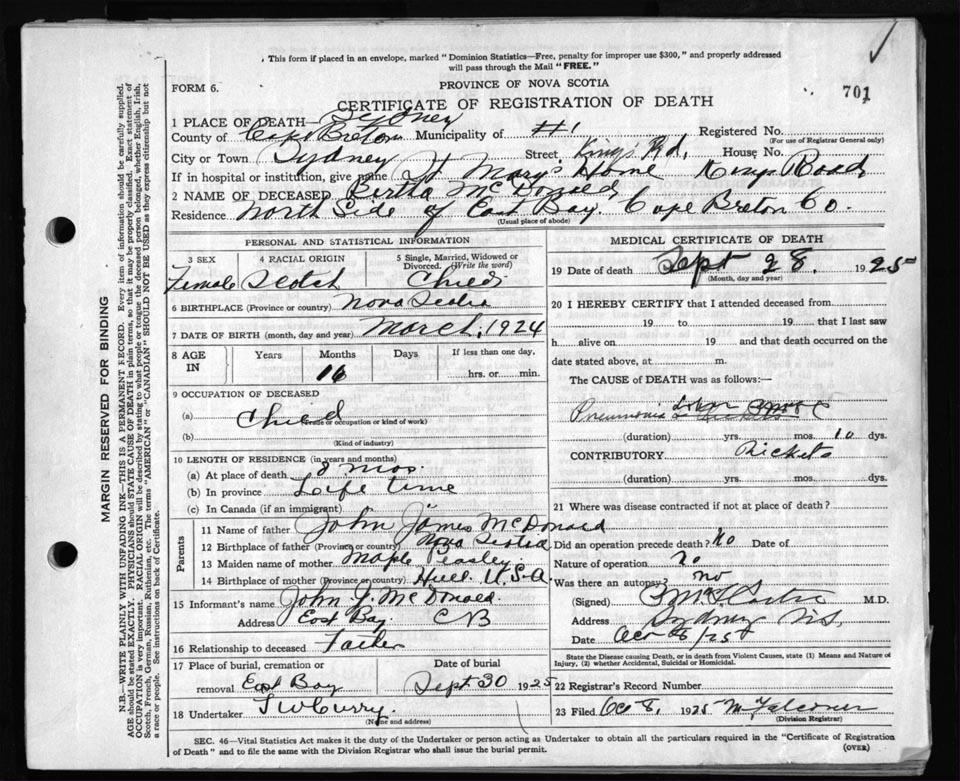 This form if placed in an envelope, marked "Dominion Statistics—Free, penalty for improper use $300," and properly addressed
will pass through the Mail "FREE."
FORM 6.
PROVINCE OF NOVA SCOTIA
701
CERTIFICATE OF REGISTRATION OF DEATH
1 PLACE OF DEATH— Sydney
County of Cape Breton Municipality of #1 Registered No.
(For use of Registrar General only)
City or Town Sydney Street, Kings Rd, House No.
If in hospital or institution, give name St Marys Home Kings Road
2 NAME OF DECEASED Bertha McDonald
Residence North Side of East Bay. Cape Breton Co.
(Usual place of abode)
PERSONAL AND STATISTICAL INFORMATION
3 SEX 4 RACIAL ORIGIN 5 Single, Married, Widowed or Divorced. (Write the word)
Female Scotch Child
6 BIRTHPLACE (Province or country) Nova Scotia
7 DATE OF BIRTH (month, day and year) March, 1924
8 AGE IN Years Months Days If less than one day,
16 hrs. or min.
9 OCCUPATION OF DECEASED
(a) Child
(Trade or occupation or kind of work)
(b)
(Kind of industry)
10 LENGTH OF RESIDENCE (in years and months)
(a) At place of death 8 mos.
(b) In province Life time
(c) In Canada (if an immigrant)
Parents
11 Name of father John James McDonald
12 Birthplace of father (Province or country) Nova Scotia
13 Maiden name of mother
14 Birthplace of mother (Province or country) Hull U.S.A
15 Informant's name John J. McDonald.
Address East Bay. CB
16 Relationship to deceased Father
17 Place of burial, cremation or removal East Bay
Date of burial Sept 30 1925
18 Undertaker
(Name and address)
MEDICAL CERTIFICATE OF DEATH
19 Date of death Sept 28. 1925
(Month, day and year)
20 I HEREBY CERTIFY that I attended deceased from
19 to 19 that I last saw
h alive on 19 and that death occurred on the
date stated above, at m.
The CAUSE of DEATH was as follows:—
Pneumonia
(duration) yrs. mos. 10 dys.
CONTRIBUTORY Rickets
(duration) yrs. mos. dys.
21 Where was disease contracted if not at place of death?
Did an operation precede death? No Date of
Nature of operation No
Was there an autopsy? no
(Signed) M.D.
Address Sydney N.S.
Date
State the Disease causing Death, or in death from Violent Causes, state (1) Means and Nature of
Injury, (2) whether Accidental, Suicidal or Homicidal.
22 Registrar's Record Number
23 Filed Oc 8, 1925 M Falconer
(Division Registrar)
SEC. 46—Vital Statistics Act makes it the duty of the Undertaker or person acting as Undertaker to obtain all the particulars required in the "Certificate of Registration
of Death" and to file the same with the Division Registrar who shall issue the burial permit.
(OVER)
MARGIN RESERVED FOR BINDING
N.B.—WRITE PLAINLY WITH UNFADING INK—THIS IS A PERMANENT RECORD. Every item of information should be carefully supplied.
AGE should be stated EXACTLY. PHYSICIANS should STATE CAUSE OF DEATH in plain terms, so that it may be properly classified. Exact statement of
OCCUPATION is very important. RACIAL ORIGIN will be described by stating to what people or tongue the deceased person belonged, whether English, Irish,
Scotch, French, German, Russian, Ruthenian, etc. The terms "AMERICAN" or "CANADIAN" SHOULD NOT BE USED as they express citizenship but not
a race or people. See instructions on back of Certificate.